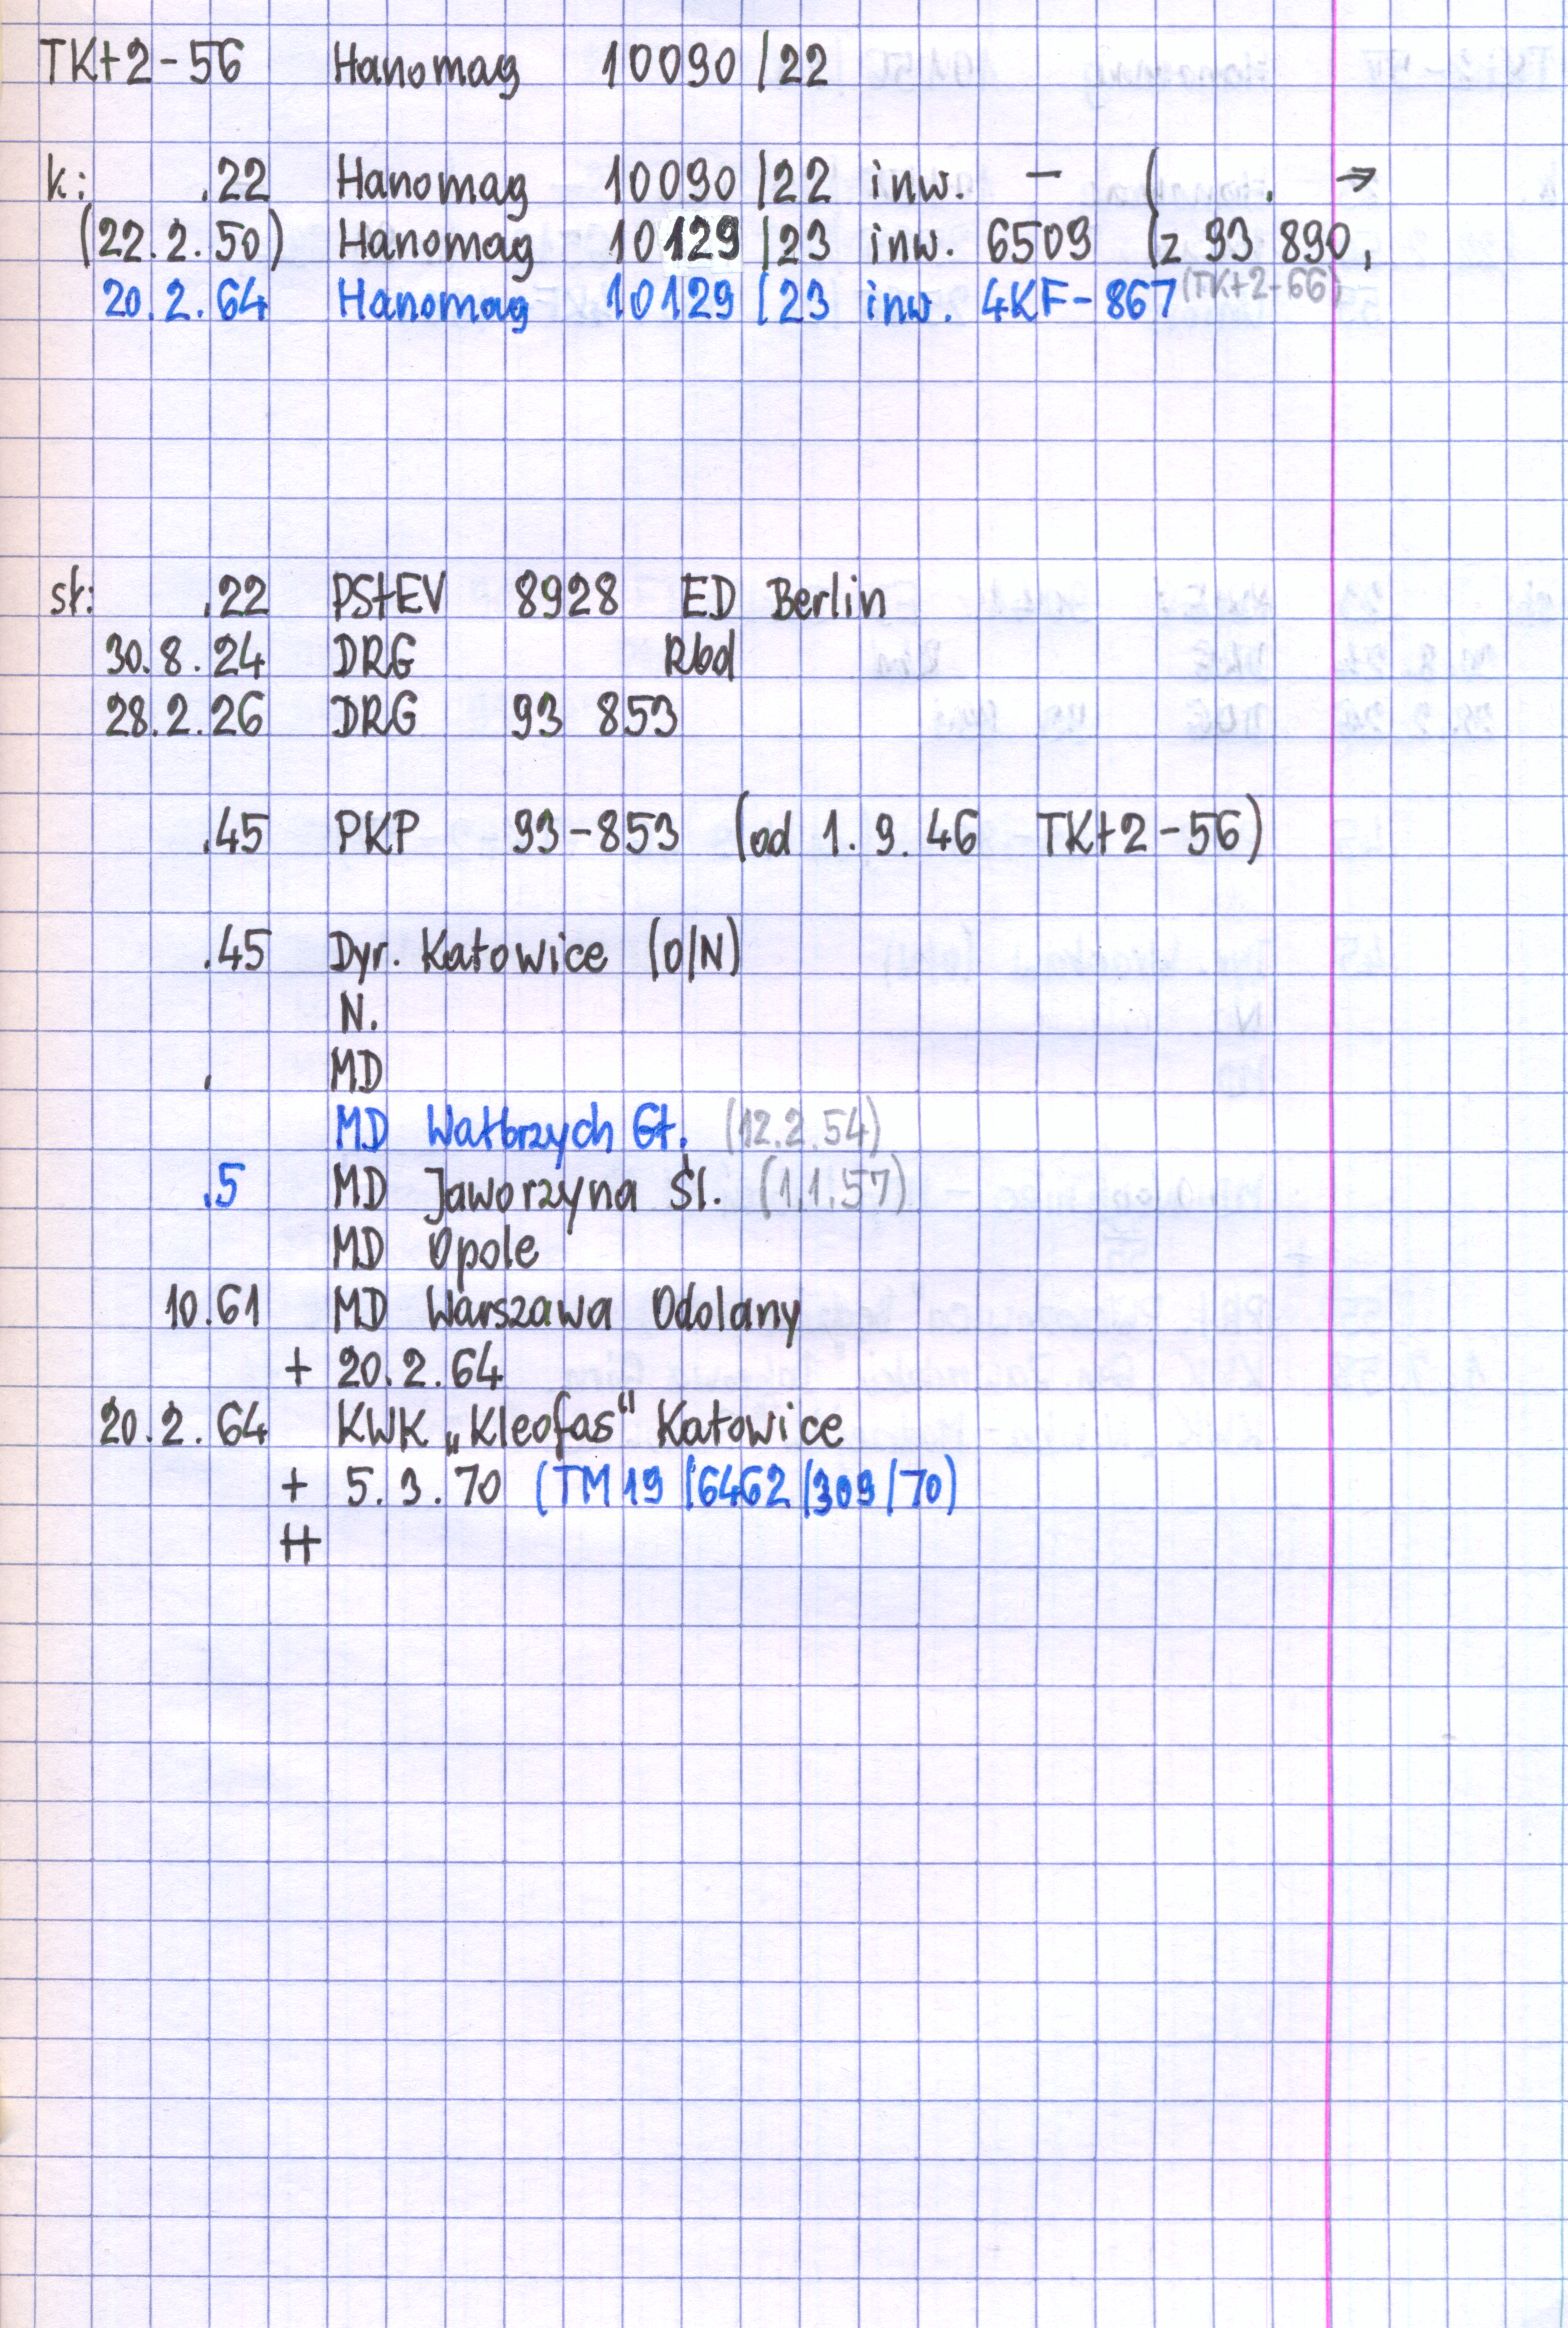 TKt2-56 Hanomag 10090/22
k: .22 Hanomag 10090/22 inw. - ( . →
(22.2.50) Hanomag 10129/23 inw. 6509 (z 93 890,
20.2.64 Hanomag 10129/23 inw. 4KF-867 (TKt2-66)
st: .22 PStEV 8928 ED Berlin
30.8.24 DRG Rbd
28.2.26 DRG 93 853
.45 PKP 93-853 (od 1.9.46 TKt2-56)
.45 Dyr. Katowice (O/N)
N.
. MD
MD Wałbrzych Gł. (12.2.54)
.5 MD Jaworzyna Śl. (1.1.57)
MD Opole
10.61 MD Warszawa Odolany
+ 20.2.64
20.2.64 KWK „Kleofas" Katowice
+ 5.3.70 (TM19/6462/309/70)
++